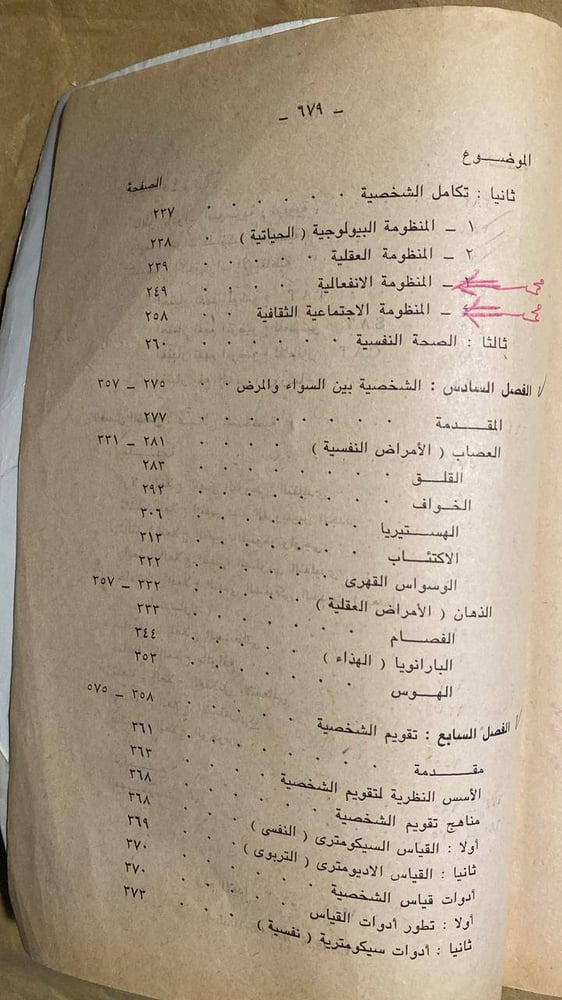 ـ ٦٧٩ ـ
الموضــــوع الصفحة
ثانيا : تكامل الشخصية ٢٣٧
١ ـ المنظومة البيولوجية ( الحياتية ) ٢٣٨
٢ ـ المنظومة العقلية ٢٣٩
٣ ـ المنظومة الانفعالية ٢٤٩
٤ ـ المنظومة الاجتماعية الثقافية ٢٥٨
ثالثا : الصحة النفسية ٢٦٠
الفصل السادس : الشخصية بين السواء والمرض ٢٧٥ ـ ٣٥٧
المقدمــــة ٢٧٧
العصاب ( الأمراض النفسية ) ٢٨١ ـ ٣٣١
القلــق ٢٨٣
الخــواف ٢٩٢
الهســتيريا ٣٠٦
الاكتئــاب ٣١٣
الوسواس القهرى ٣٢٢
الذهان ( الأمراض العقلية ) ٣٣٢ ـ ٣٥٧
الفصــام ٣٣٣
البارانويا ( الهذاء ) ٣٤٤
الهــوس ٣٥٣
الفصل السابع : تقويم الشخصية ٣٥٨ ـ ٥٧٥
مقدمــــة ٣٦١
الأسس النظرية لتقويم الشخصية ٣٦٣
مناهج تقويم الشخصية ٣٦٨
أولا : القياس السيكومترى ( النفسى ) ٣٦٨
ثانيا : القياس الاديومترى ( التربوى ) ٣٦٩
أدوات قياس الشخصية ٣٧٠
أولا : تطور أدوات القياس ٣٧٠
ثانيا : أدوات سيكومترية ( نفسية ) ٣٧٣